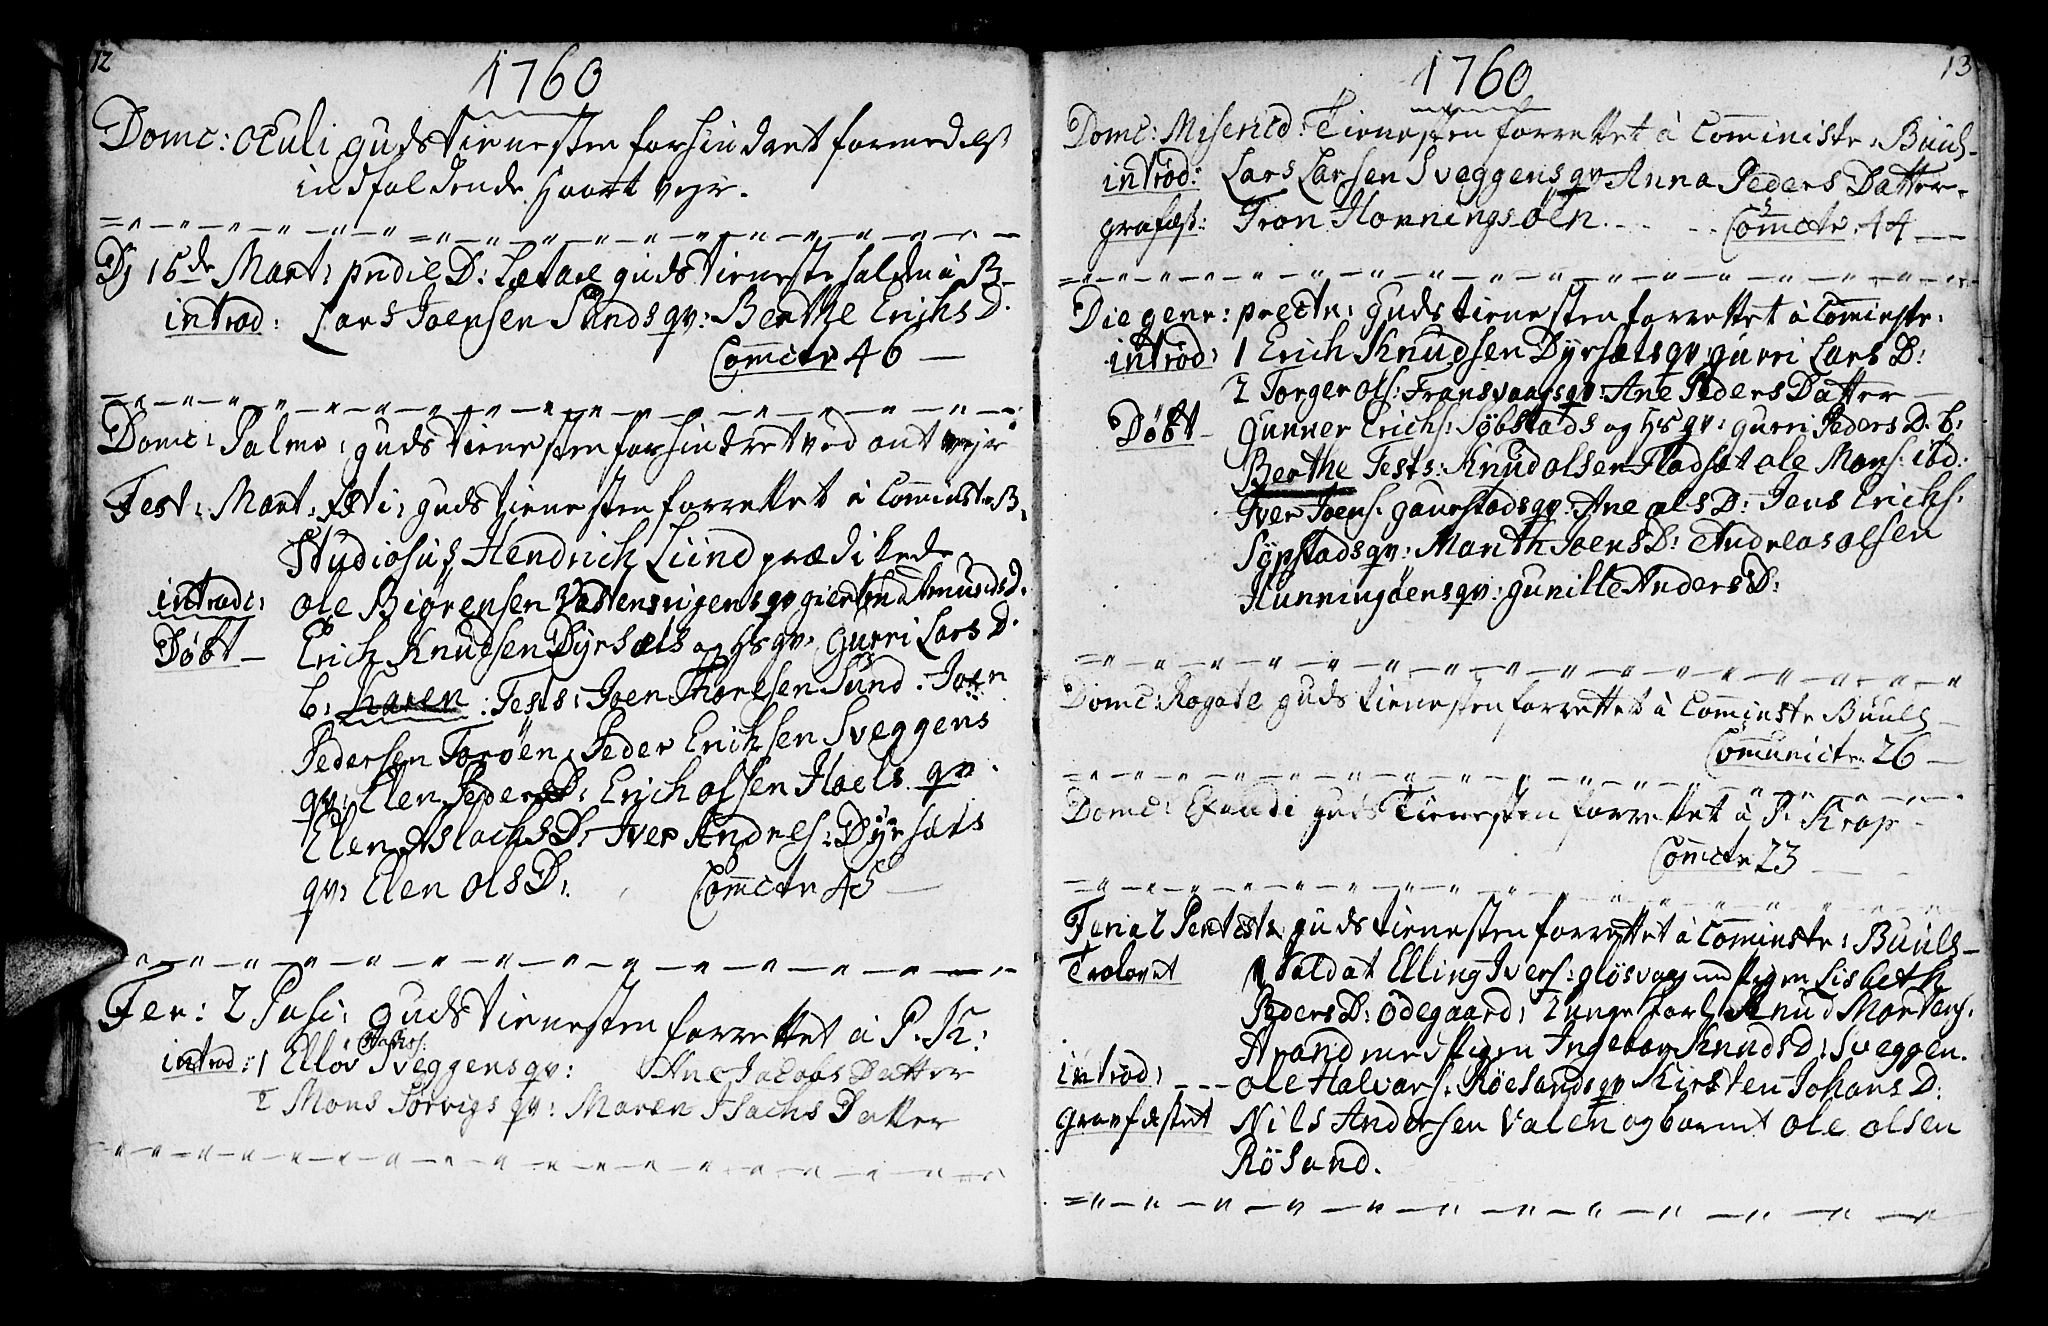 12
1760
Domc: Oculi gudstienesten forhindret formedelst
indfaldende haart vejr.
Dj 16de Mart: pndie D: Lætare gudstieneste holden á B
introd: Lars Joensen Sunds qv: Berthe Erichs D.
Comctr 46
Domc: Palma: gudstienesten forhindret ved ont vejr
Fest: Mart: gudstienesten forrettet á Cominster B.
Studiosus Hendrich Lund prædikede
introdc: Ole Biørensen qv Amunds D.
Døbt Erich Knudsen Dyrsæts og hs qv: Gurri Lars D.
b: Karen: Tests: Joen Thoresen Sund. Joen
Pedersen Torøen, Peder Eriksen Sveggens
qv: Elen Peders D: Erich Olssen Hoels qv.
Elen Aslachs D. Iver Andres: Dyrsæts
qv: Elen Ols D: Comctr 45
Fer: 2 Pasc: gudstienesten forrettet á P. K:
introd: 1 Ellov Sveggens qv: Ane Jacobs Datter
2 Mons Sørvigs qv: Maren Isachs Datter
13
1760
Domc: Misericd: Tienesten forrettet á Cominister Buuls
introd: Lars Larsen Sveggens qv Anna Peders Datter.
grafæst: Tron Horningsøen. Comctr 44
Die gener: prectn: gudstienesten forrettet á Cominstr:
introd: 1 Erich Knudsen Dyrsæts qv: gurri Lars D:
2 Torger Ols: Fransvaags qv: Ane Peders Datter
Døbt Gunner Erichs: Søbstads og hs qv: gurri Peders D. b:
Berthe Tests: Knud Olsen Fladsæt Ole Mons: ibd:
Iver Joens: gauestads qv: Ane Ols D: Jens Erichs:
Søpstads qv: Marith Joens D: Andreas Olsen
Hunningøens qv: gunille Anders D:
Domc: Rogate gudstienesten forrettet á Cominstr Buuls
Comunictr 26
Domc: Exaudi gudstienesten forrettet á P. Krop
Comctr 23
Feria 2 Pentcste gudstienesten forrettet á Cominstr: Buuls
Trolovet 1 Soldat Elling Ivers: gløsvaag med pigen Lisbeth
Peders D: Ødegaard: 2 unge karl Knud Mortens:
Arand med pigen Ingebor Knuds D: Sveggen.
introd: Ole Halvars: Røesands qv Kirsten Johans D:
gravfæstet Nils Andersen Valen og barnet Ole Olsen
Røsand.